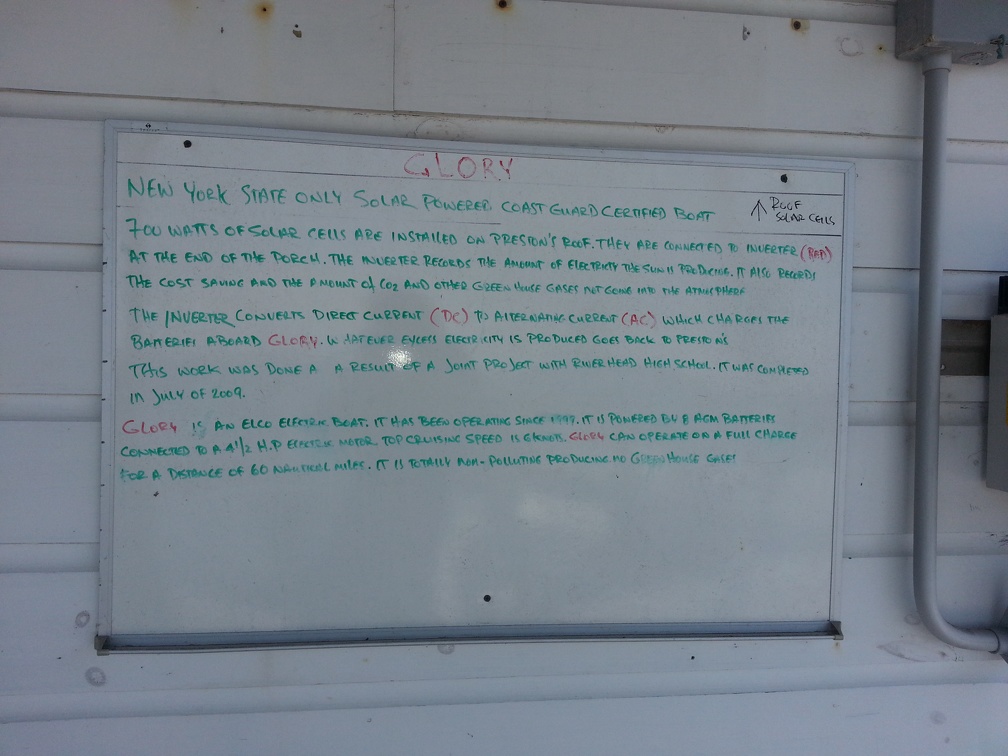 GLORY
NEW YORK STATE ONLY SOLAR POWERED COAST GUARD CERTIFIED BOAT
↑ ROOF
SOLAR CELLS
700 WATTS OF SOLAR CELLS ARE INSTALLED ON PRESTON'S ROOF. THEY ARE CONNECTED TO INVERTER (RED)
AT THE END OF THE PORCH. THE INVERTER RECORDS THE AMOUNT OF ELECTRICITY THE SUN IS PRODUCING. IT ALSO RECORDS
THE COST SAVING AND THE AMOUNT of CO2 AND OTHER GREEN HOUSE GASES NOT GOING INTO THE ATMOSPHERE
THE INVERTER CONVERTS DIRECT CURRENT (DC) TO ALTERNATING CURRENT (AC) WHICH CHARGES THE
BATTERIES ABOARD GLORY. WHATEVER EXCESS ELECTRICITY IS PRODUCED GOES BACK TO PRESTON'S
THIS WORK WAS DONE A A RESULT OF A JOINT PROJECT WITH RIVERHEAD HIGH SCHOOL. IT WAS COMPLETED
IN JULY OF 2009.
GLORY IS AN ELCO ELECTRIC BOAT. IT HAS BEEN OPERATING SINCE 1999. IT IS POWERED BY 8 AGM BATTERIES
CONNECTED TO A 4 1/2 H.P ELECTRIC MOTOR. TOP CRUISING SPEED IS 6 KNOTS. GLORY CAN OPERATE ON A FULL CHARGE
FOR A DISTANCE OF 60 NAUTICAL MILES. IT IS TOTALLY NON-POLLUTING PRODUCING NO GREEN HOUSE GASES